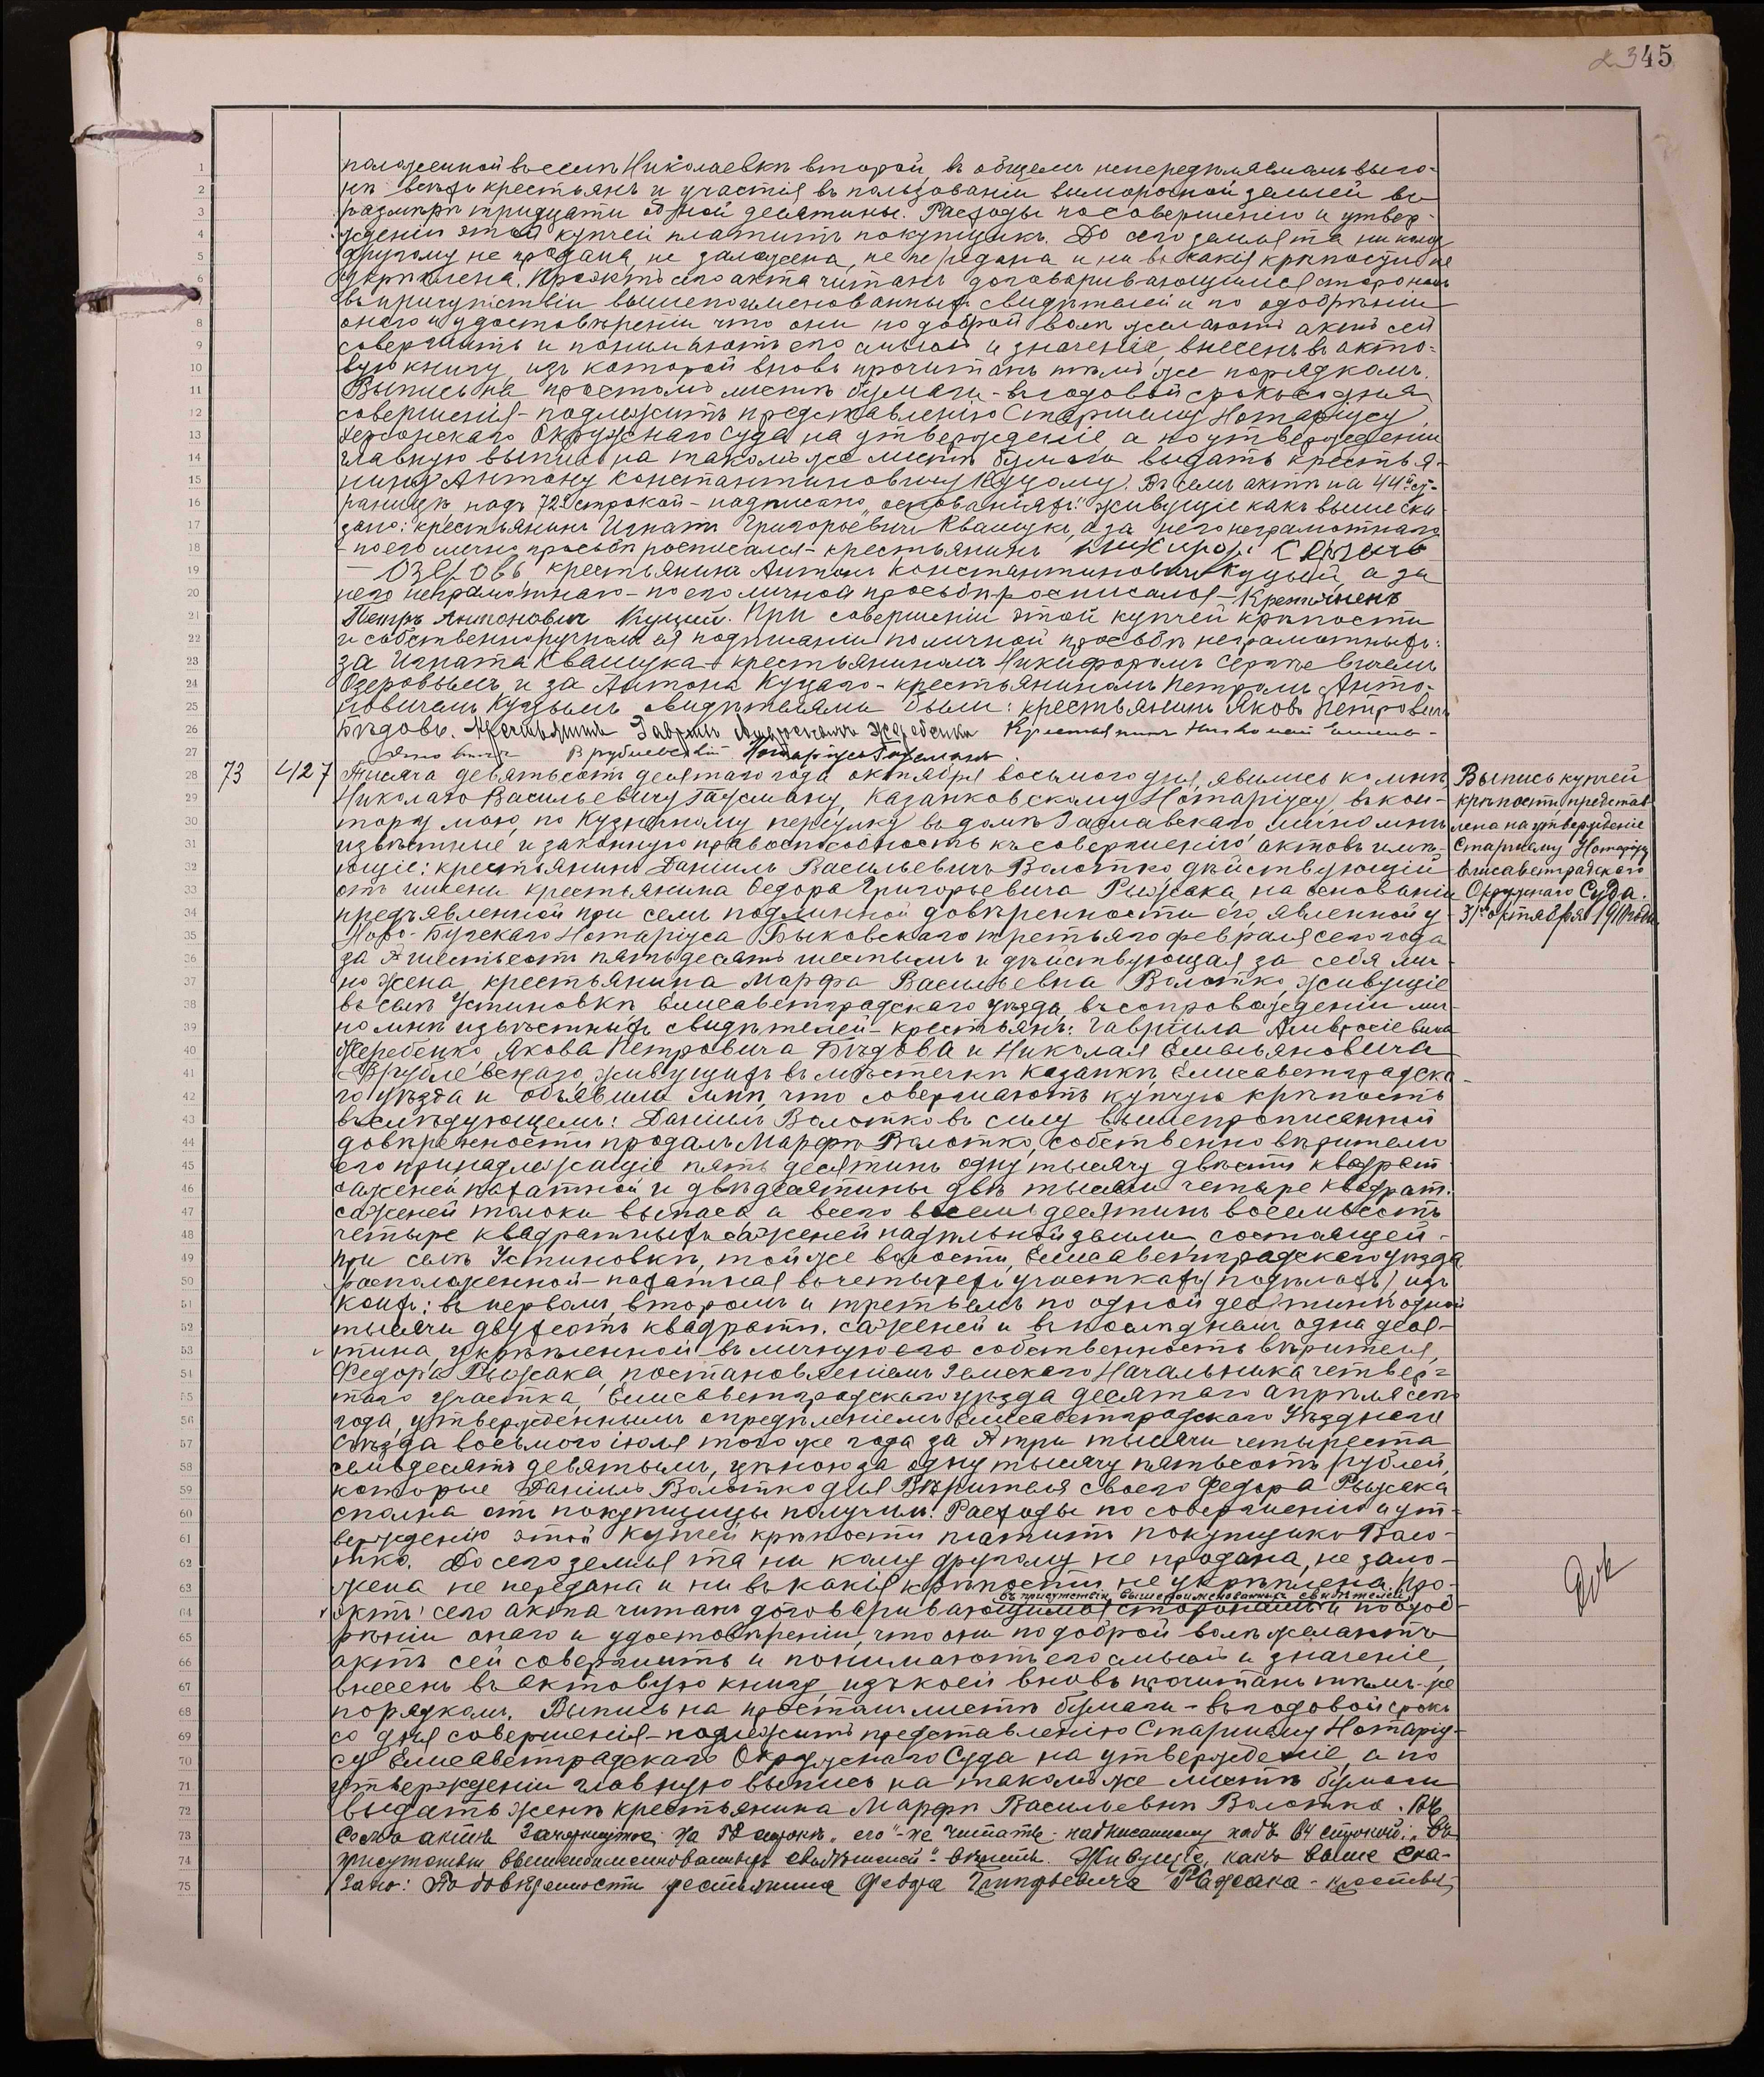 345
положенной въ селѣ Николаевкѣ второй, въ общемъ непередѣляемомъ выго-
нѣ всѣхъ крестьянъ и участія въ пользованіи выморочной землей въ
размѣрѣ тридцати одной десятины. Расходы по совершенію и утвер-
жденію этой купчей платитъ покупщикъ. До сего земля та никому
другому не продана, не заложена, не передана и ни въ какія крѣпости не
укрѣплена. Проектъ сего акта читанъ договаривающимся сторонамъ
въ присутствіи вышепоименованныхъ свидѣтелей и по одобреніи
онаго и удостовѣреніи что они по доброй волѣ желаютъ актъ сей
совершить и понимаютъ его смыслъ и значеніе, внесенъ въ акто-
вую книгу, изъ которой вновь прочитанъ тѣмъ же порядкомъ.
Выпись на простомъ листѣ бумаги - въ годовой срокъ со дня
совершенія - подлежитъ представленію Старшему Нотаріусу
Херсонскаго Окружнаго Суда на утвержденіе, а по утвержденіи
главную выпись на такомъ же листѣ бумаги выдать крестья-
нину Антону Константиновичу Куцому. Въ семъ актѣ на 44й ст-
раницѣ, надъ 72й строкой - надписано „основаніяхъ“. Живущіе какъ выше ска-
зано: крестьянинъ Игнатъ Григорьевичъ Квашукъ, а за него неграмотнаго
- по его личной просьбѣ росписался - крестьянинъ Никифоръ Сергѣевъ
- Озеровъ, крестьянинъ Антонъ Константиновичъ Куцый, а за
него неграмотнаго - по его личной просьбѣ росписался - Крестьянинъ
Петръ Антоновичъ Куцый. При совершеніи этой купчей крѣпости
и собственноручномъ ея подписаніи по личной просьбѣ неграмотныхъ:
за Игната Квашука - крестьяниномъ Никифоромъ Сергѣевичемъ
Озеровымъ, и за Антона Куцаго - крестьяниномъ Петромъ Анто-
новичемъ Куцымъ свидѣтелями были: крестьянинъ Яковъ Петровичъ
Бѣдовъ. Крестьянинъ Гавріилъ Амвросіевичъ Жеребенко Крестьянинъ Николай Емель-
яновичъ Врублевскій Нотаріусъ Гаусманъ.
73 427 Тысяча девятьсотъ десятаго года октября восьмого дня, явились ко мнѣ,
Николаю Васильевичу Гаусману, Казанковскому Нотаріусу, въ кон-
тору мою, по Кузнечному переулку въ домѣ Заславскаго, лично мнѣ
извѣстные и законную правоспособность къ совершенію актовъ имѣ-
ющіе: крестьянинъ Даніилъ Васильевичъ Волотко дѣйствующій
отъ имени крестьянина Ѳедора Григорьевича Рыжака, на основаніи
предъявленной при семъ подлинной довѣренности его, явленной у
Ново-Бугскаго Нотаріуса Быковскаго третьяго февраля сего года
за № шестьсотъ пятьдесятъ шестымъ и дѣйствующая за себя лич-
но жена крестьянина Марфа Васильевна Волотко, живущіе
въ селѣ Устиновкѣ, Елисаветградскаго уѣзда, въ сопровожденіи лич-
но мнѣ извѣстныхъ свидѣтелей - крестьянъ: Гавріила Амвросіевича
Жеребенко, Якова Петровича Бѣдова и Николая Емельяновича
Врублевскаго, живущихъ въ мѣстечкѣ Казанкѣ, Елисаветградска-
го уѣзда и объявили мнѣ, что совершаютъ купчую крѣпость
въ слѣдующемъ: Даніилъ Волотко въ силу вышепрописанной
довѣренности продалъ Марфѣ Волотко, собственно вѣрителю
его принадлежащіе пять десятинъ одну тысячу двѣсти квадрат.
саженей пахатной и двѣ десятины двѣ тысячи четыре квадрат.
саженей толоки выпаса а всего восемь десятинъ восемьсотъ
четыре квадратныхъ саженей надѣльной земли, состоящей -
при селѣ Устиновкѣ, той же волости, Елисаветградскаго уѣзда
расположенной - пахатная въ четырехъ участкахъ (подѣлахъ) изъ
коихъ: въ первомъ, второмъ и третьемъ по одной десятинѣ одной
тысячи двухсотъ квадратн. саженей и въ послѣднемъ одна деся-
тина, укрѣпленной въ личную его собственность вѣрителя,
Федора Рыжака, постановленіемъ Земскаго Начальника четвер-
таго участка, Елисаветградскаго уѣзда десятаго апрѣля сего
года, утвержденнымъ опредѣленіемъ Елисаветградскаго Уѣзднаго
Съѣзда восьмого іюля того же года за № три тысячи четыреста
семьдесятъ девятымъ, цѣною за одну тысячу пятьсотъ рублей,
которые Даніилъ Волотко для Вѣрителя своего Федора Рыжака
сполна отъ покупщицы получилъ. Расходы по совершенію и ут-
вержденію этой купчей крѣпости платитъ покупщика Воло-
тко. До сего земля та ни кому другому не продана, не зало-
жена не передана и ни въ какія крѣпости не укрѣплена. Про-
въ присутствіи вышепоименованныхъ свидѣтелей
ектъ сего акта читанъ договаривающимся сторонамъ и по одоб-
реніи онаго и удостовѣреніи, что они по доброй волѣ желаютъ
актъ сей совершить и понимаютъ его смыслъ и значеніе,
внесенъ въ актовую книгу, изъ коей вновь прочитанъ тѣмъ-же
порядкомъ. Выпись на простомъ листѣ бумаги - въ годовой срокъ
со дня совершенія - подлежитъ представленію Старшему Нотаріу-
су Елисаветградскаго Окружнаго Суда на утвержденіе, а по
утвержденіи главную выпись на такомъ же листѣ бумаги
выдать женѣ крестьянина Марфѣ Васильевнѣ Волотко. Въ
семъ актѣ зачеркнутое на 53 строкѣ „его“ - не читать - надписанному надъ 64 строкой: „въ
присутствіи вышепоименованныхъ свидѣтелей“ - вѣрить. Живущіе, какъ выше ска-
зано: По довѣренности крестьянина Федора Григорьевича Рыжака - крестья-
Выпись купчей
крѣпости представ-
лена на утвержденіе
Старшему Нотаріусу
Елисаветградскаго
Окружнаго Суда.
31го октября 1910 года